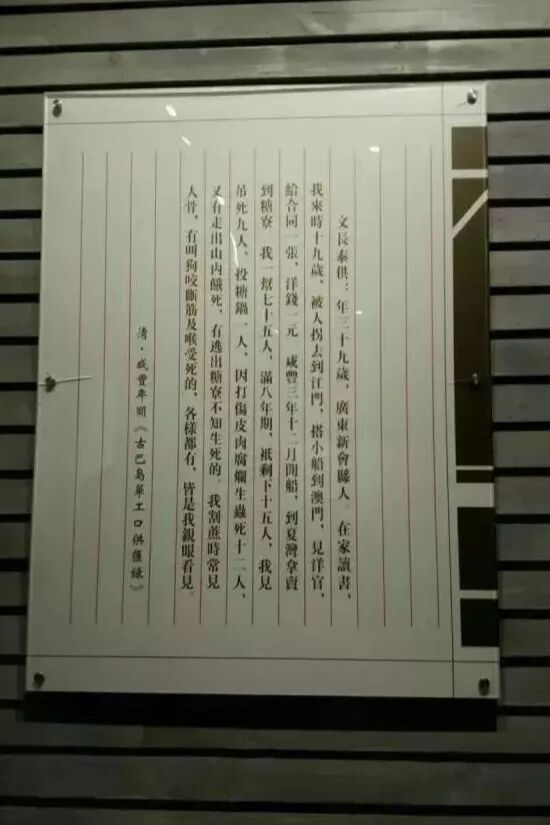 文長泰供：年三十九歲，廣東新會縣人。在家讀書、
我來時十九歲、被人拐去到江門，搭小船到澳門，見洋官，
給合同一張、洋錢一元　咸豐三年十二月開船，到夏灣拿賣
到糖寮　我一幫七十五人、滿八年期、祇剩下十五人、我見
吊死九人、投糖鍋一人、因打傷皮肉腐爛生蟲死十二人、
又有走出山內餓死，有逃出糖寮不知生死的。我割蔗時常見
人骨，有叫狗咬斷筋及喉受死的、各樣都有、皆是我親眼看見。
清·咸豐年間《古巴島華工口供匯錄》